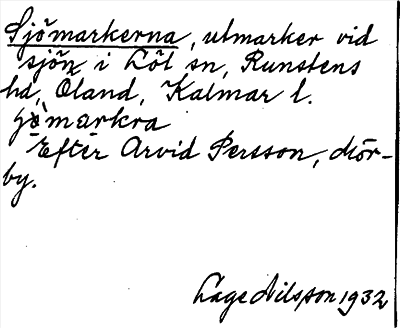 Sjömarkerna, utmarker vid
sjön i Löt sn, Runstens
hd, Öland, Kalmar l.
Efter Arvid Persson, Mör-
by.
Lage Nilsson 1932